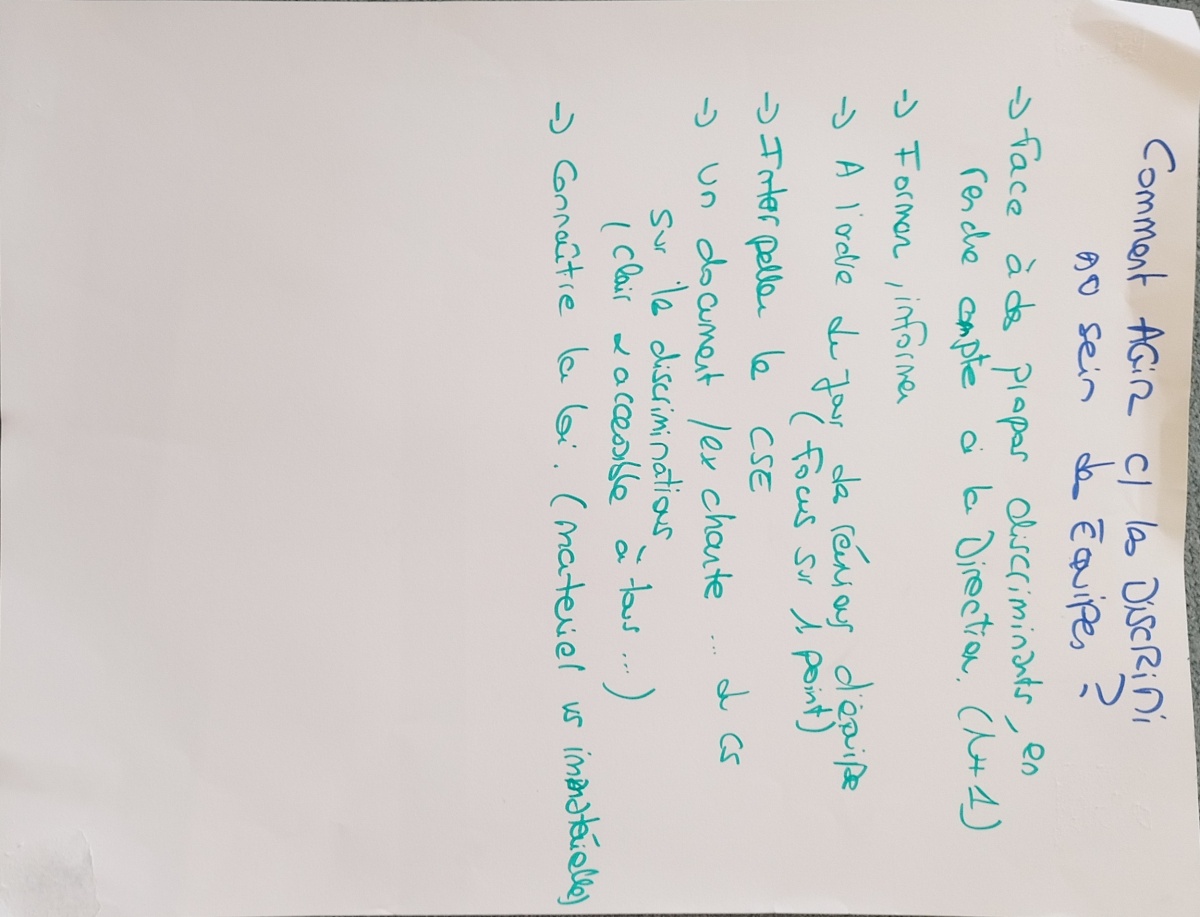 Comment AGIR c/ les DISCRIMI
au sein des Équipes ?
→ Face à des propos discriminants, en
rendre compte à la Direction. (N+1)
→ Former, informer
→ A l'ordre du jour de réunions d'équipe
(focus sur 1 point)
→ Interpeller le CSE
→ Un document /ex charte ... du CS
sur les discriminations
(clair & accessible à tous ...)
→ Connaître la loi. (matériel vs immatérielle)